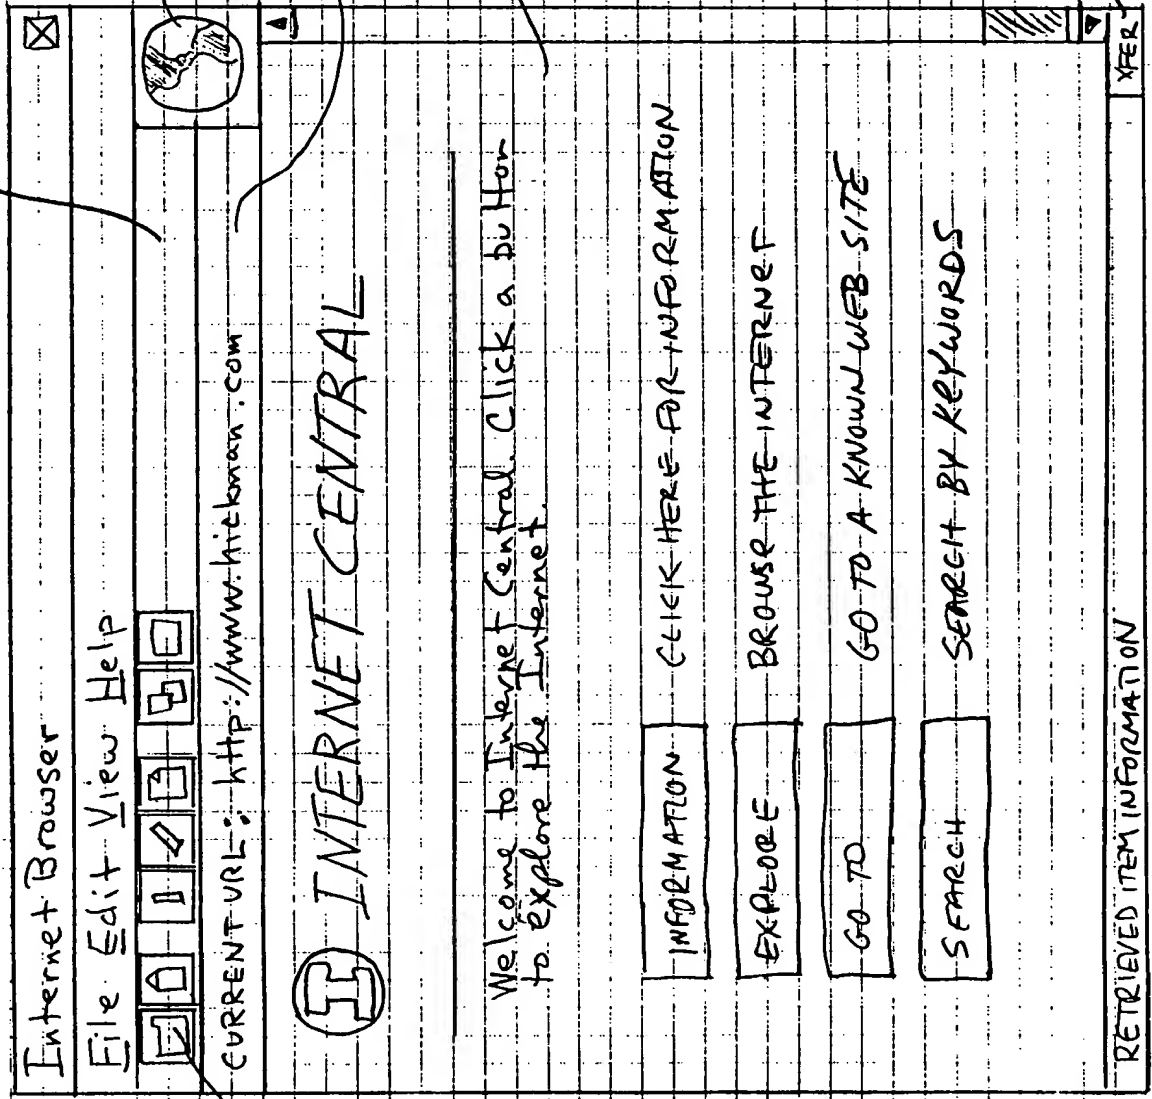 Internet Browser
File Edit View Help
CURRENT URL: http://www.hickman.com
I INTERNET CENTRAL
Welcome to Internet Central. Click a button
to explore the Internet.
INFORMATION CLICK HERE FOR INFORMATION
EXPLORE BROWSE THE INTERNET
GO TO GO TO A KNOWN WEB SITE
SEARCH SEARCH BY KEYWORDS
RETRIEVED ITEM INFORMATION XFER